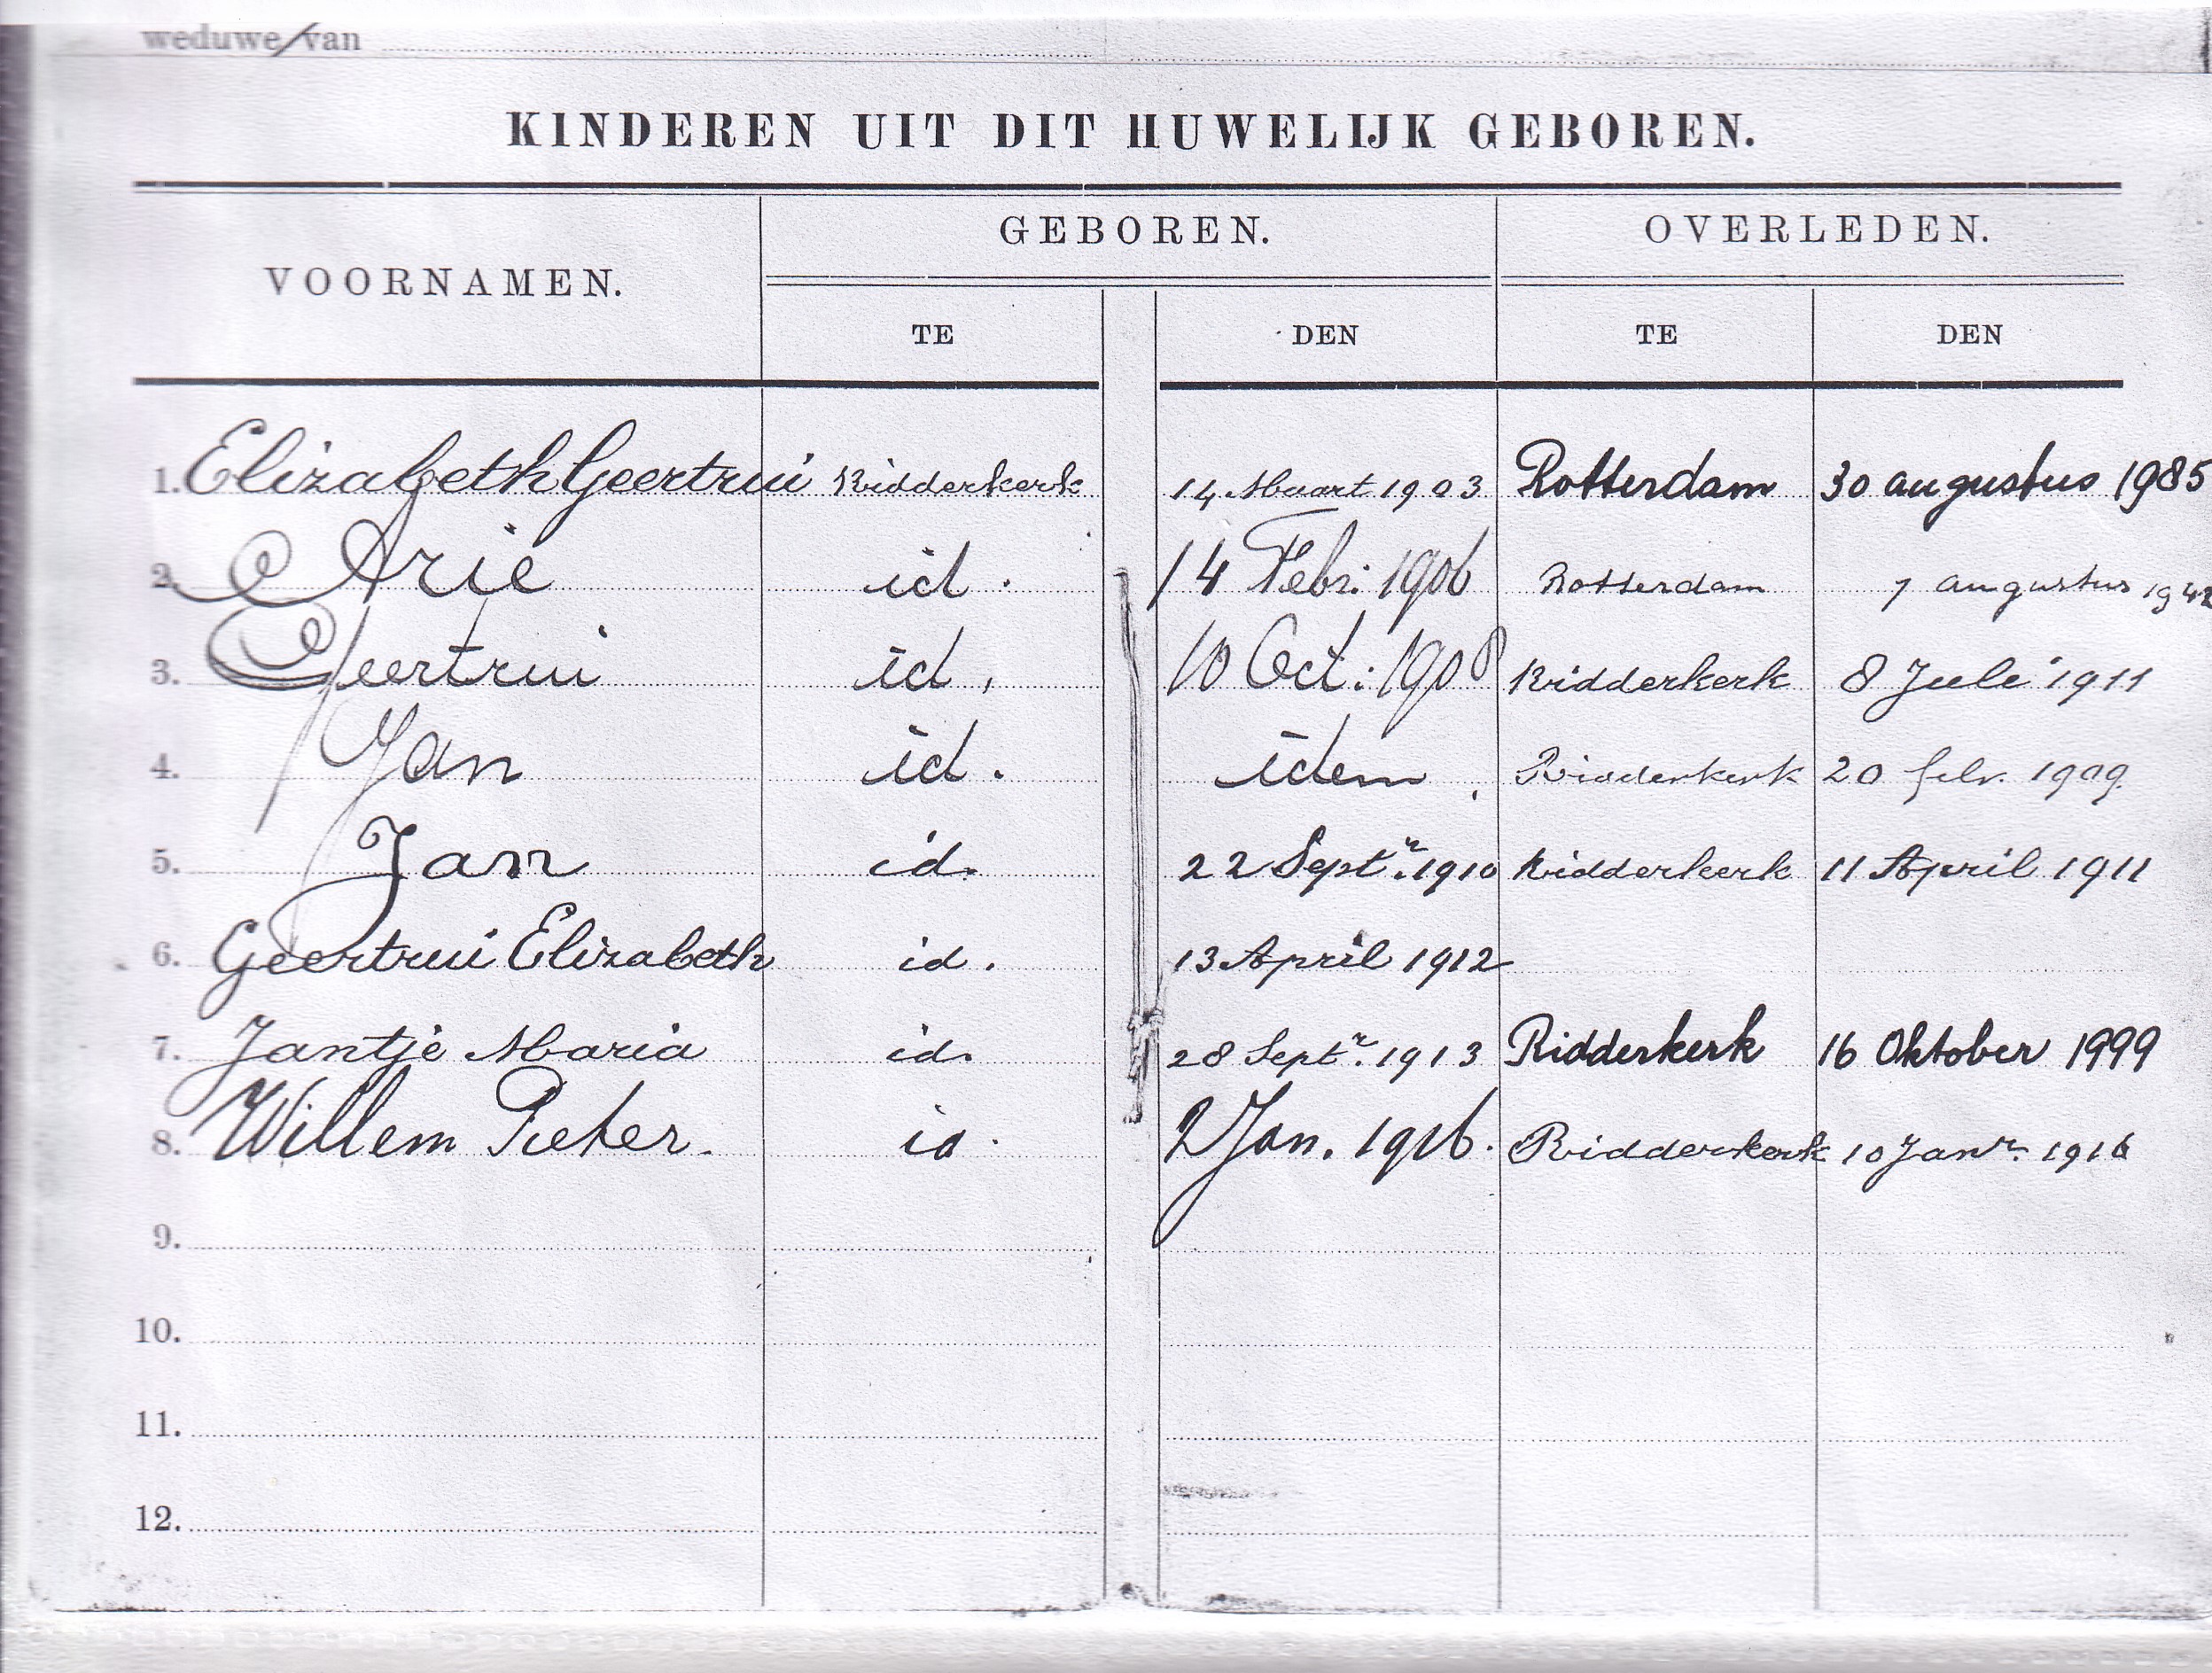 weduwe/van
KINDEREN UIT DIT HUWELIJK GEBOREN.
VOORNAMEN. GEBOREN. OVERLEDEN.
TE DEN TE DEN
1. Elizabeth Geertrui Ridderkerk 14 Maart 1903 Rotterdam 30 augustus 1985
2. Arie id. 14 Febr: 1906 Rotterdam 7 augustus 1942
3. Geertrui id, 10 Oct: 1908 Ridderkerk 8 Juli 1911
4. Jan id. idem Ridderkerk 20 febr. 1909.
5. Jan id. 22 Septr. 1910 Ridderkerk 11 April 1911
6. Geertrui Elizabeth id. 13 April 1912
7. Jantje Maria id. 28 Septr. 1913 Ridderkerk 16 Oktober 1999
8. Willem Pieter. id. 2 Jan. 1916. Ridderkerk 10 Janr. 1916
9.
10.
11.
12.